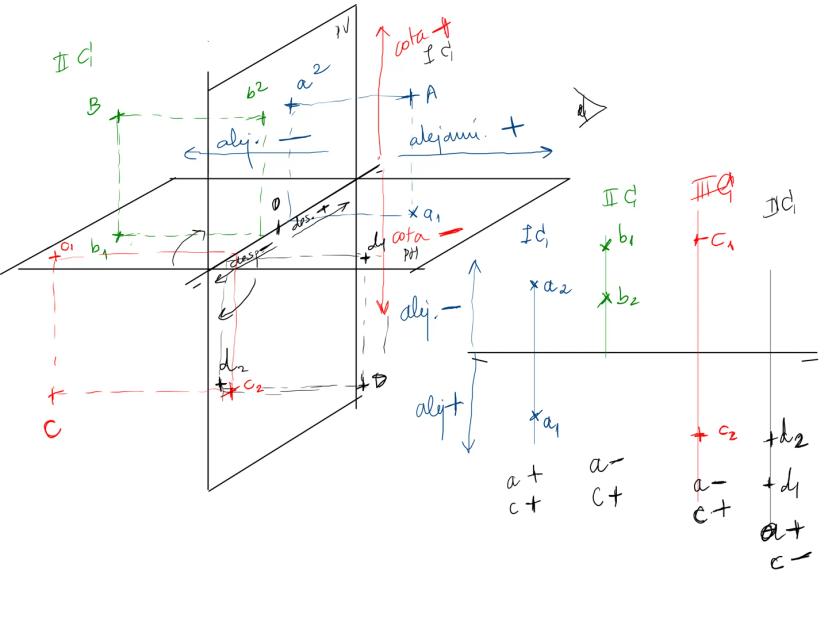 PV
cota +
I C1
II C1
a2
b2
B
A
alej. —
alejami. +
O
des. +
a1
b1
c1
cota —
PH
d1
desp. —
d2
c2
D
C
I C1
II C1
III C1
b1
c1
a2
b2
alej. —
alej +
a1
c2
d2
d1
a +
c +
a —
c +
a —
c +
a +
c —